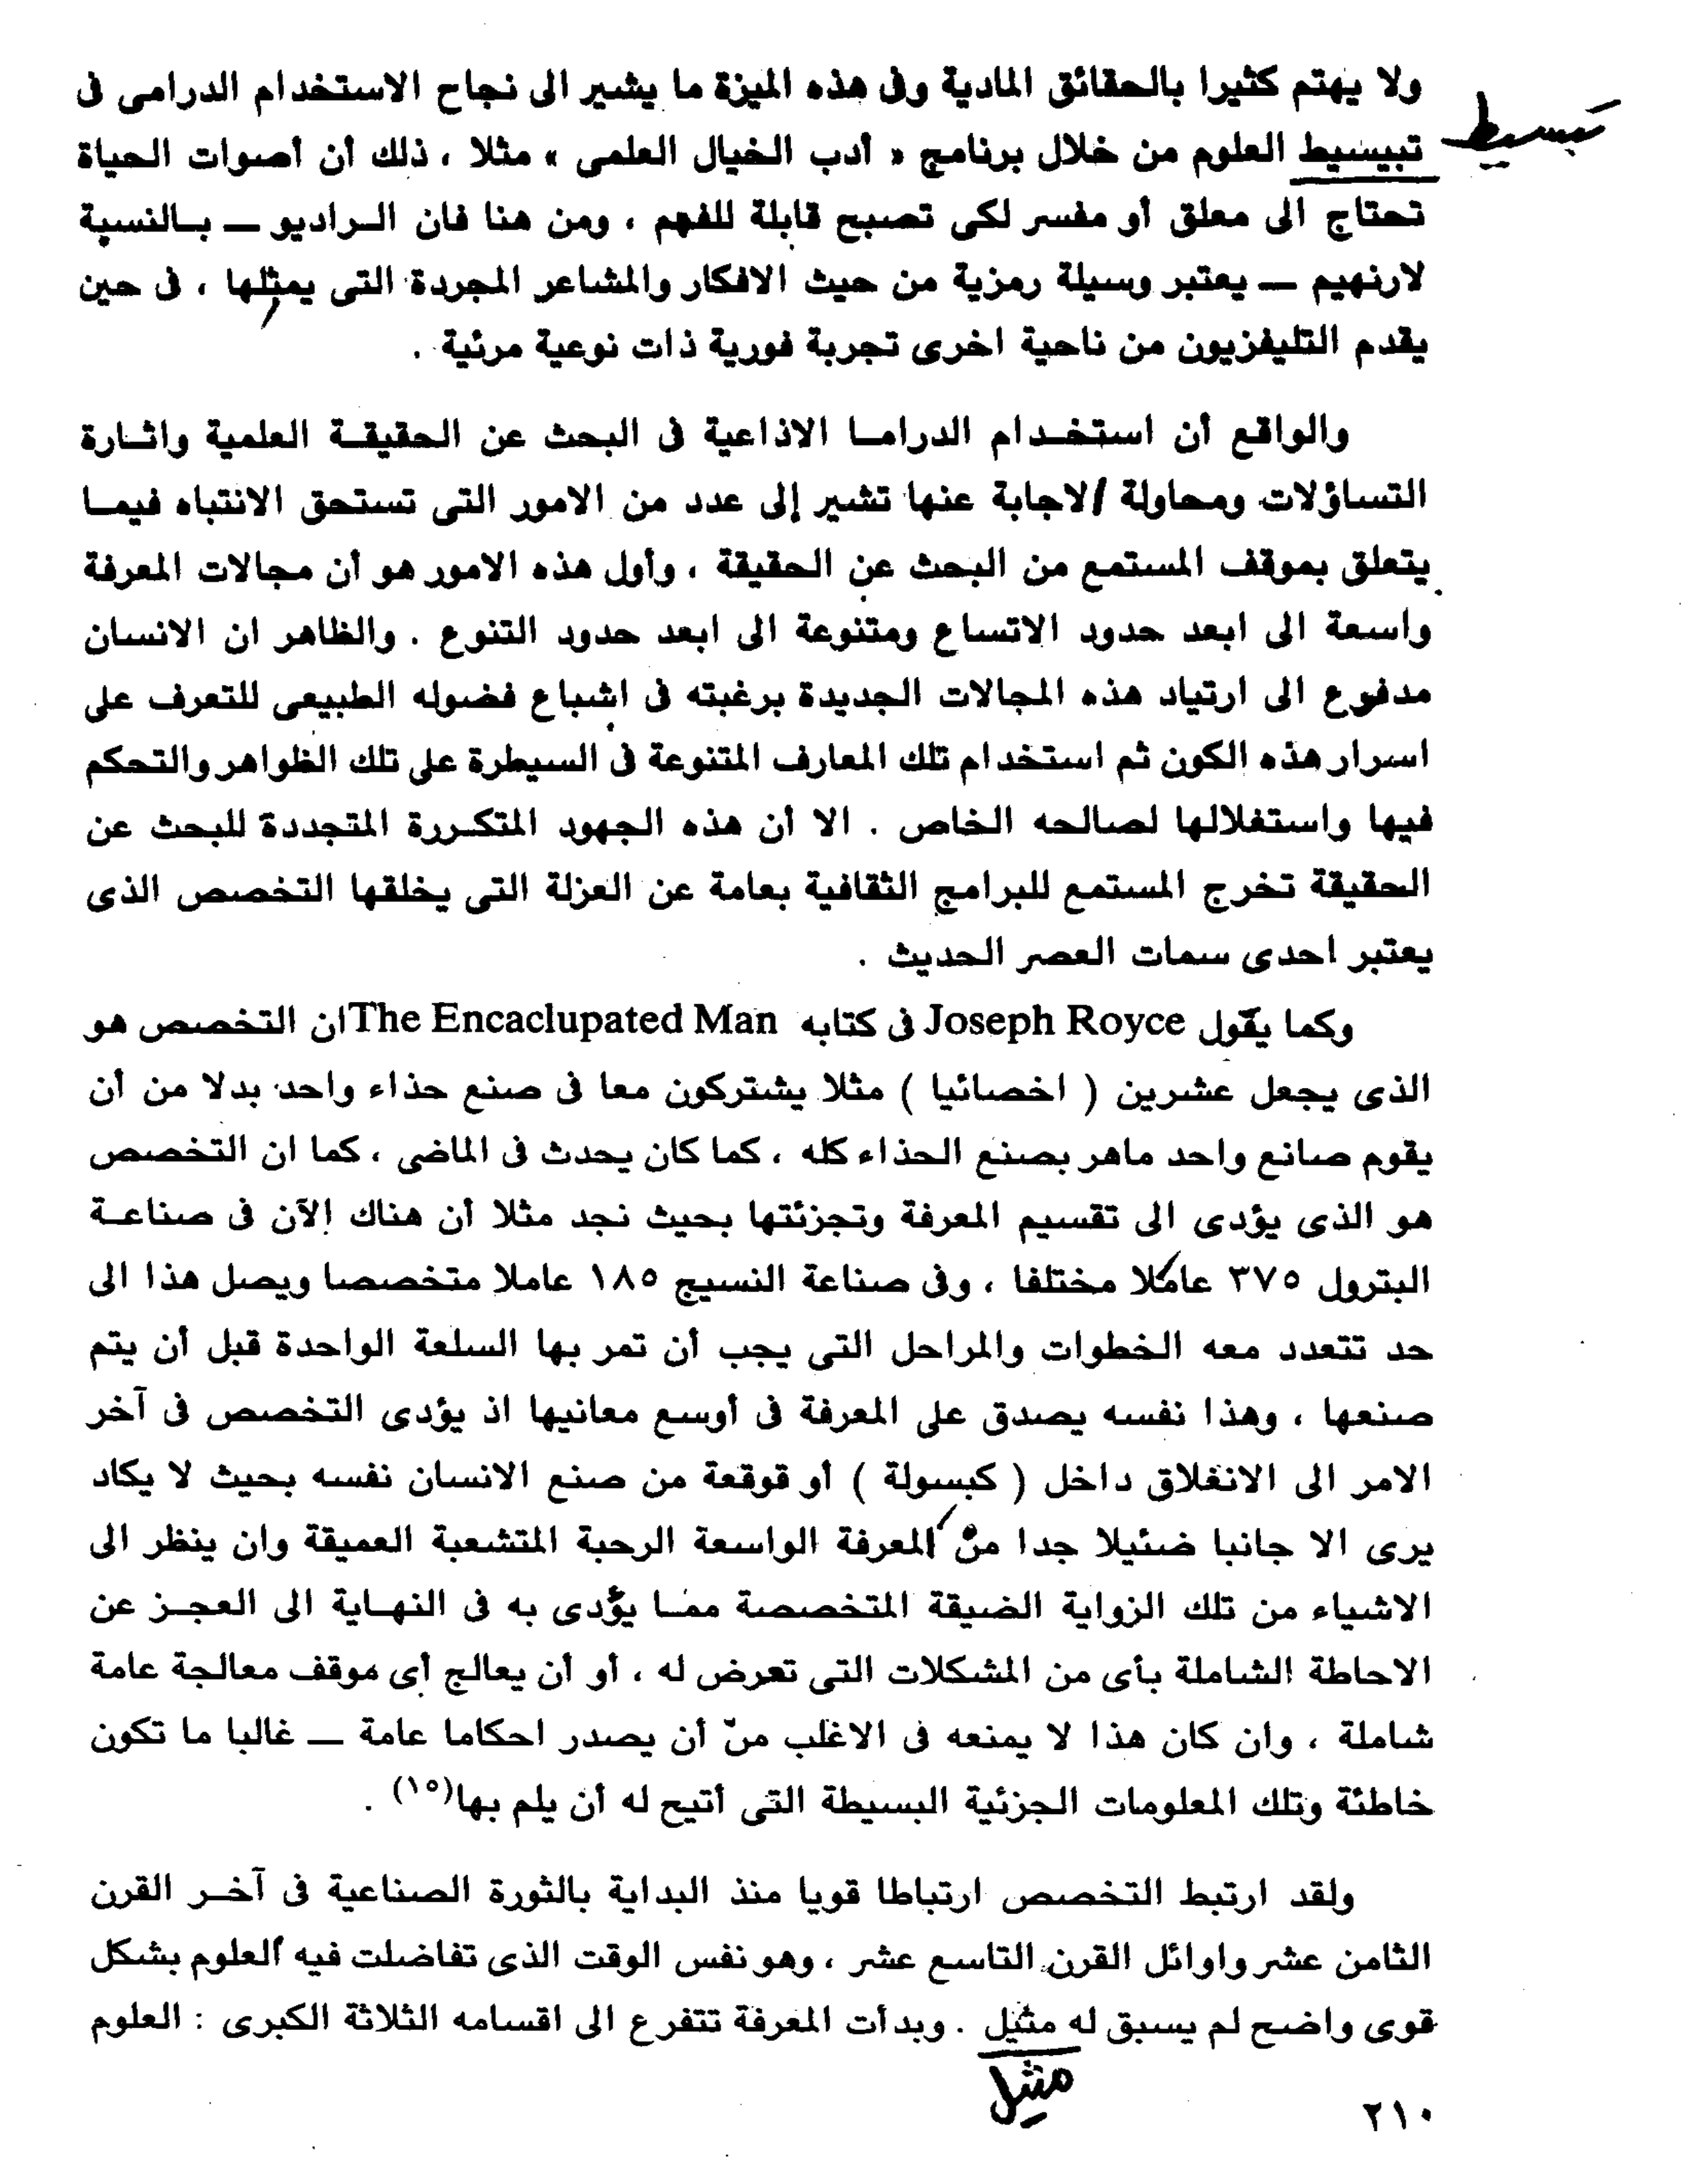 ولا يهتم كثيرا بالحقائق المادية وفى هذه الميزة ما يشير الى نجاح الاستخدام الدرامى فى
تبيسيط العلوم من خلال برنامج « أدب الخيال العلمى » مثلا ، ذلك أن أصوات الحياة
تبسيط
تحتاج الى معلق أو مفسر لكى تصبح قابلة للفهم ، ومن هنا فان الـراديو — بـالنسبة
لارنهيم — يعتبر وسيلة رمزية من حيث الافكار والمشاعر المجردة التى يمثلها ، فى حين
يقدم التليفزيون من ناحية اخرى تجربة فورية ذات نوعية مرئية .
والواقع أن استخـدام الدرامـا الاذاعية فى البحث عن الحقيقـة العلمية واثـارة
التساؤلات ومحاولة الاجابة عنها تشير إلى عدد من الامور التى تستحق الانتباه فيمـا
يتعلق بموقف المستمع من البحث عن الحقيقة ، وأول هذه الامور هو أن مجالات المعرفة
واسعة الى ابعد حدود الاتساع ومتنوعة الى ابعد حدود التنوع . والظاهر ان الانسان
مدفوع الى ارتياد هذه المجالات الجديدة برغبته فى اشباع فضوله الطبيعى للتعرف على
اسرار هذه الكون ثم استخدام تلك المعارف المتنوعة فى السيطرة على تلك الظواهر والتحكم
فيها واستغلالها لصالحه الخاص . الا أن هذه الجهود المتكـررة المتجددة للبحث عن
الحقيقة تخرج المستمع للبرامج الثقافية بعامة عن العزلة التى يخلقها التخصص الذى
يعتبر احدى سمات العصر الحديث .
وكما يقول Joseph Royce فى كتابه The Encaclupated Man ان التخصص هو
الذى يجعل عشرين ( اخصائيا ) مثلا يشتركون معا فى صنع حذاء واحد بدلا من أن
يقوم صانع واحد ماهر بصنع الحذاء كله ، كما كان يحدث فى الماضى ، كما ان التخصص
هو الذى يؤدى الى تقسيم المعرفة وتجزئتها بحيث نجد مثلا أن هناك الآن فى صناعـة
البترول ٣٧٥ عاملا مختلفا ، وفى صناعة النسيج ١٨٥ عاملا متخصصا ويصل هذا الى
حد تتعدد معه الخطوات والمراحل التى يجب أن تمر بها السلعة الواحدة قبل أن يتم
صنعها ، وهذا نفسه يصدق على المعرفة فى أوسع معانيها اذ يؤدى التخصص فى آخر
الامر الى الانغلاق داخل ( كبسولة ) أو قوقعة من صنع الانسان نفسه بحيث لا يكاد
يرى الا جانبا ضئيلا جدا من المعرفة الواسعة الرحبة المتشعبة العميقة وان ينظر الى
الاشياء من تلك الزواية الضيقة المتخصصة ممـا يؤدى به فى النهـاية الى العجـز عن
الاحاطة الشاملة بأى من المشكلات التى تعرض له ، أو أن يعالج أى موقف معالجة عامة
شاملة ، وان كان هذا لا يمنعه فى الاغلب من أن يصدر احكاما عامة — غالبا ما تكون
خاطئة وتلك المعلومات الجزئية البسيطة التى أتيح له أن يلم بها(١٥) .
ولقد ارتبط التخصص ارتباطا قويا منذ البداية بالثورة الصناعية فى آخـر القرن
الثامن عشر واوائل القرن التاسع عشر ، وهو نفس الوقت الذى تفاضلت فيه العلوم بشكل
قوى واضح لم يسبق له مثيل . وبدأت المعرفة تتفرع الى اقسامه الثلاثة الكبرى : العلوم
مثيل
٢١٠